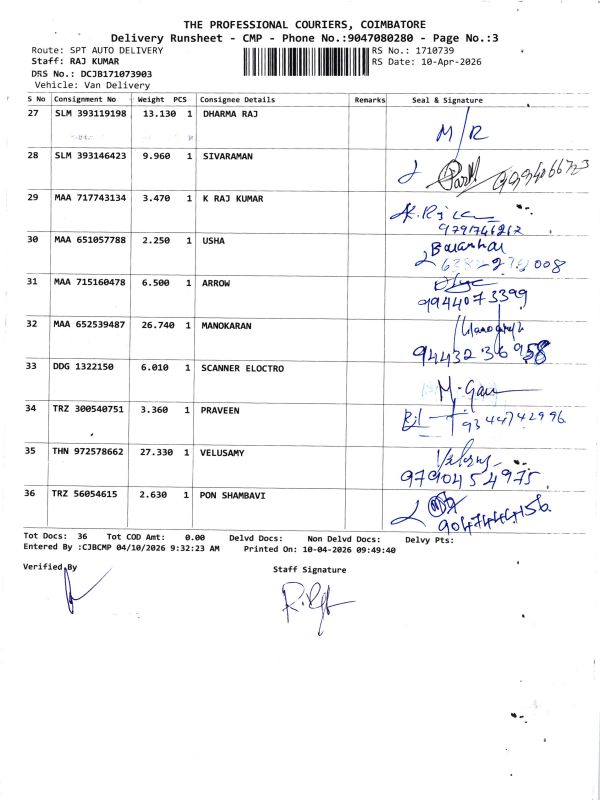 THE PROFESSIONAL COURIERS, COIMBATORE
Delivery Runsheet - CMP - Phone No.:9047080280 - Page No.:3
Route: SPT AUTO DELIVERY RS No.: 1710739
Staff: RAJ KUMAR RS Date: 10-Apr-2026
DRS No.: DCJB171073903
Vehicle: Van Delivery
S No Consignment No Weight PCS Consignee Details Remarks Seal & Signature
27 SLM 393119198 13.130 1 DHARMA RAJ M/R
28 SLM 393146423 9.960 1 SIVARAMAN
29 MAA 717743134 3.470 1 K RAJ KUMAR
9791746212
30 MAA 651057788 2.250 1 USHA
31 MAA 715160478 6.500 1 ARROW
9944073399
32 MAA 652539487 26.740 1 MANOKARAN
9443236958
33 DDG 1322150 6.010 1 SCANNER ELOCTRO
34 TRZ 300540751 3.360 1 PRAVEEN
9344742996
35 THN 972578662 27.330 1 VELUSAMY
9790454975
36 TRZ 56054615 2.630 1 PON SHAMBAVI
Tot Docs: 36 Tot COD Amt: 0.00 Delvd Docs: Non Delvd Docs: Delvy Pts:
Entered By :CJBCMP 04/10/2026 9:32:23 AM Printed On: 10-04-2026 09:49:40
Verified By Staff Signature